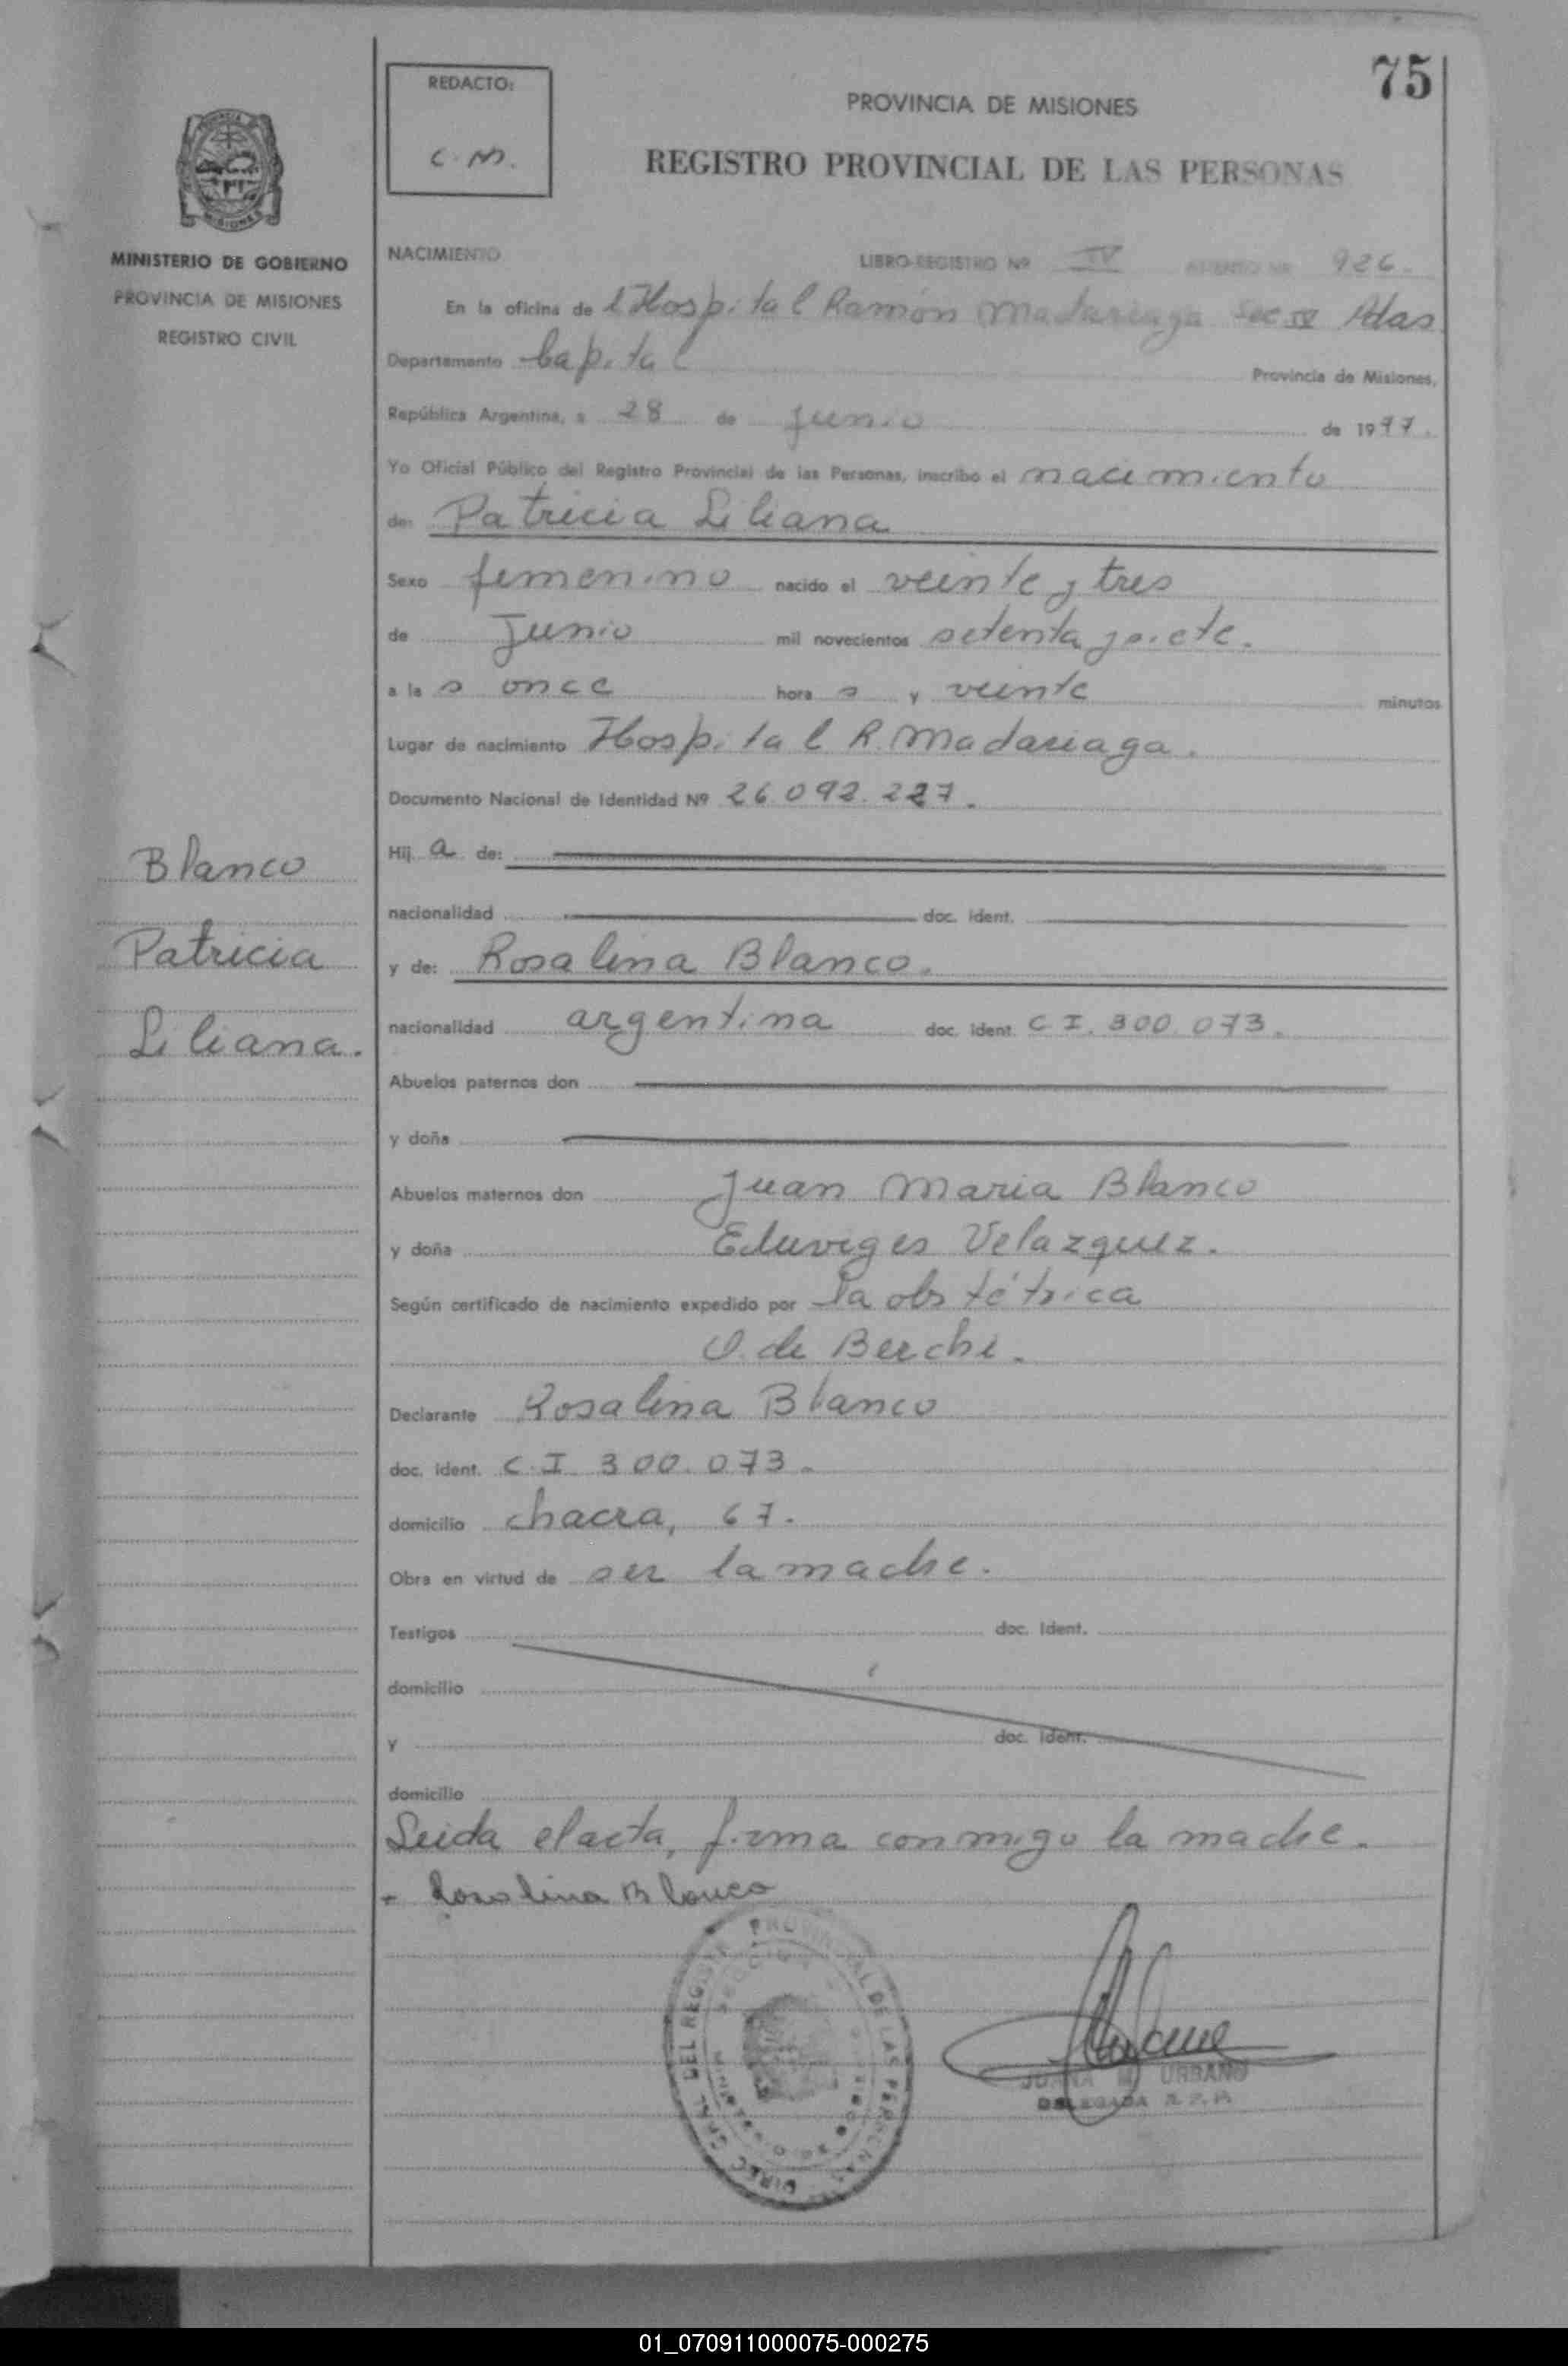 75
REDACTO:
C. M.
PROVINCIA DE MISIONES
REGISTRO PROVINCIAL DE LAS PERSONAS
MINISTERIO DE GOBIERNO
PROVINCIA DE MISIONES
REGISTRO CIVIL
NACIMIENTO LIBRO-REGISTRO Nº IV ASIENTO Nº 926.
En la oficina de l Hospital Ramón Madariaga Sec IV Pdas.
Departamento Capital Provincia de Misiones,
República Argentina, a 28 de junio de 1977.
Yo Oficial Público del Registro Provincial de las Personas, inscribo el nacimiento
de: Patricia Liliana
Sexo femenino nacido el veinte y tres
de Junio mil novecientos setenta y siete.
a la s once hora s y veinte minutos
Lugar de nacimiento Hospital R. Madariaga.
Documento Nacional de Identidad Nº 26.092.227.
Blanco
Patricia
Liliana.
Hij a de:
nacionalidad doc. ident.
y de: Rosalina Blanco.
nacionalidad argentina doc. ident. C I. 300.073.
Abuelos paternos don
y doña
Abuelos maternos don Juan Maria Blanco
y doña Eduviges Velazquez.
Según certificado de nacimiento expedido por la obstétrica
O. de Berchi.
Declarante Rosalina Blanco
doc. ident. C. I. 300.073.
domicilio chacra, 67.
Obra en virtud de ser la madre.
Testigos doc. ident.
domicilio
y doc. ident.
domicilio
Leida el acta, firma conmigo la madre.
- Rosalina Blanco
DIREC. GRAL. DEL REGISTRO PROVINCIAL DE LAS PERSONAS
JUANA M. URBANO
DELEGADA R.P.P.
01_070911000075-000275